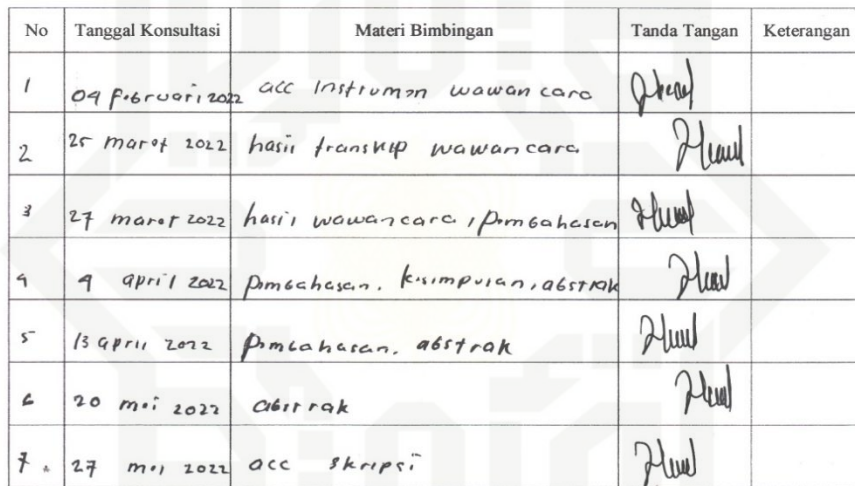 No Tanggal Konsultasi Materi Bimbingan Tanda Tangan Keterangan
1 04 Februari 2022 acc instrumen wawancara
2 25 maret 2022 hasil transkip wawancara
3 27 maret 2022 hasil wawancara, pembahasan
4 4 april 2022 pembahasan, kesimpulan, abstrak
5 13 april 2022 pembahasan, abstrak
6 20 mei 2022 abstrak
7. 27 mei 2022 acc skripsi